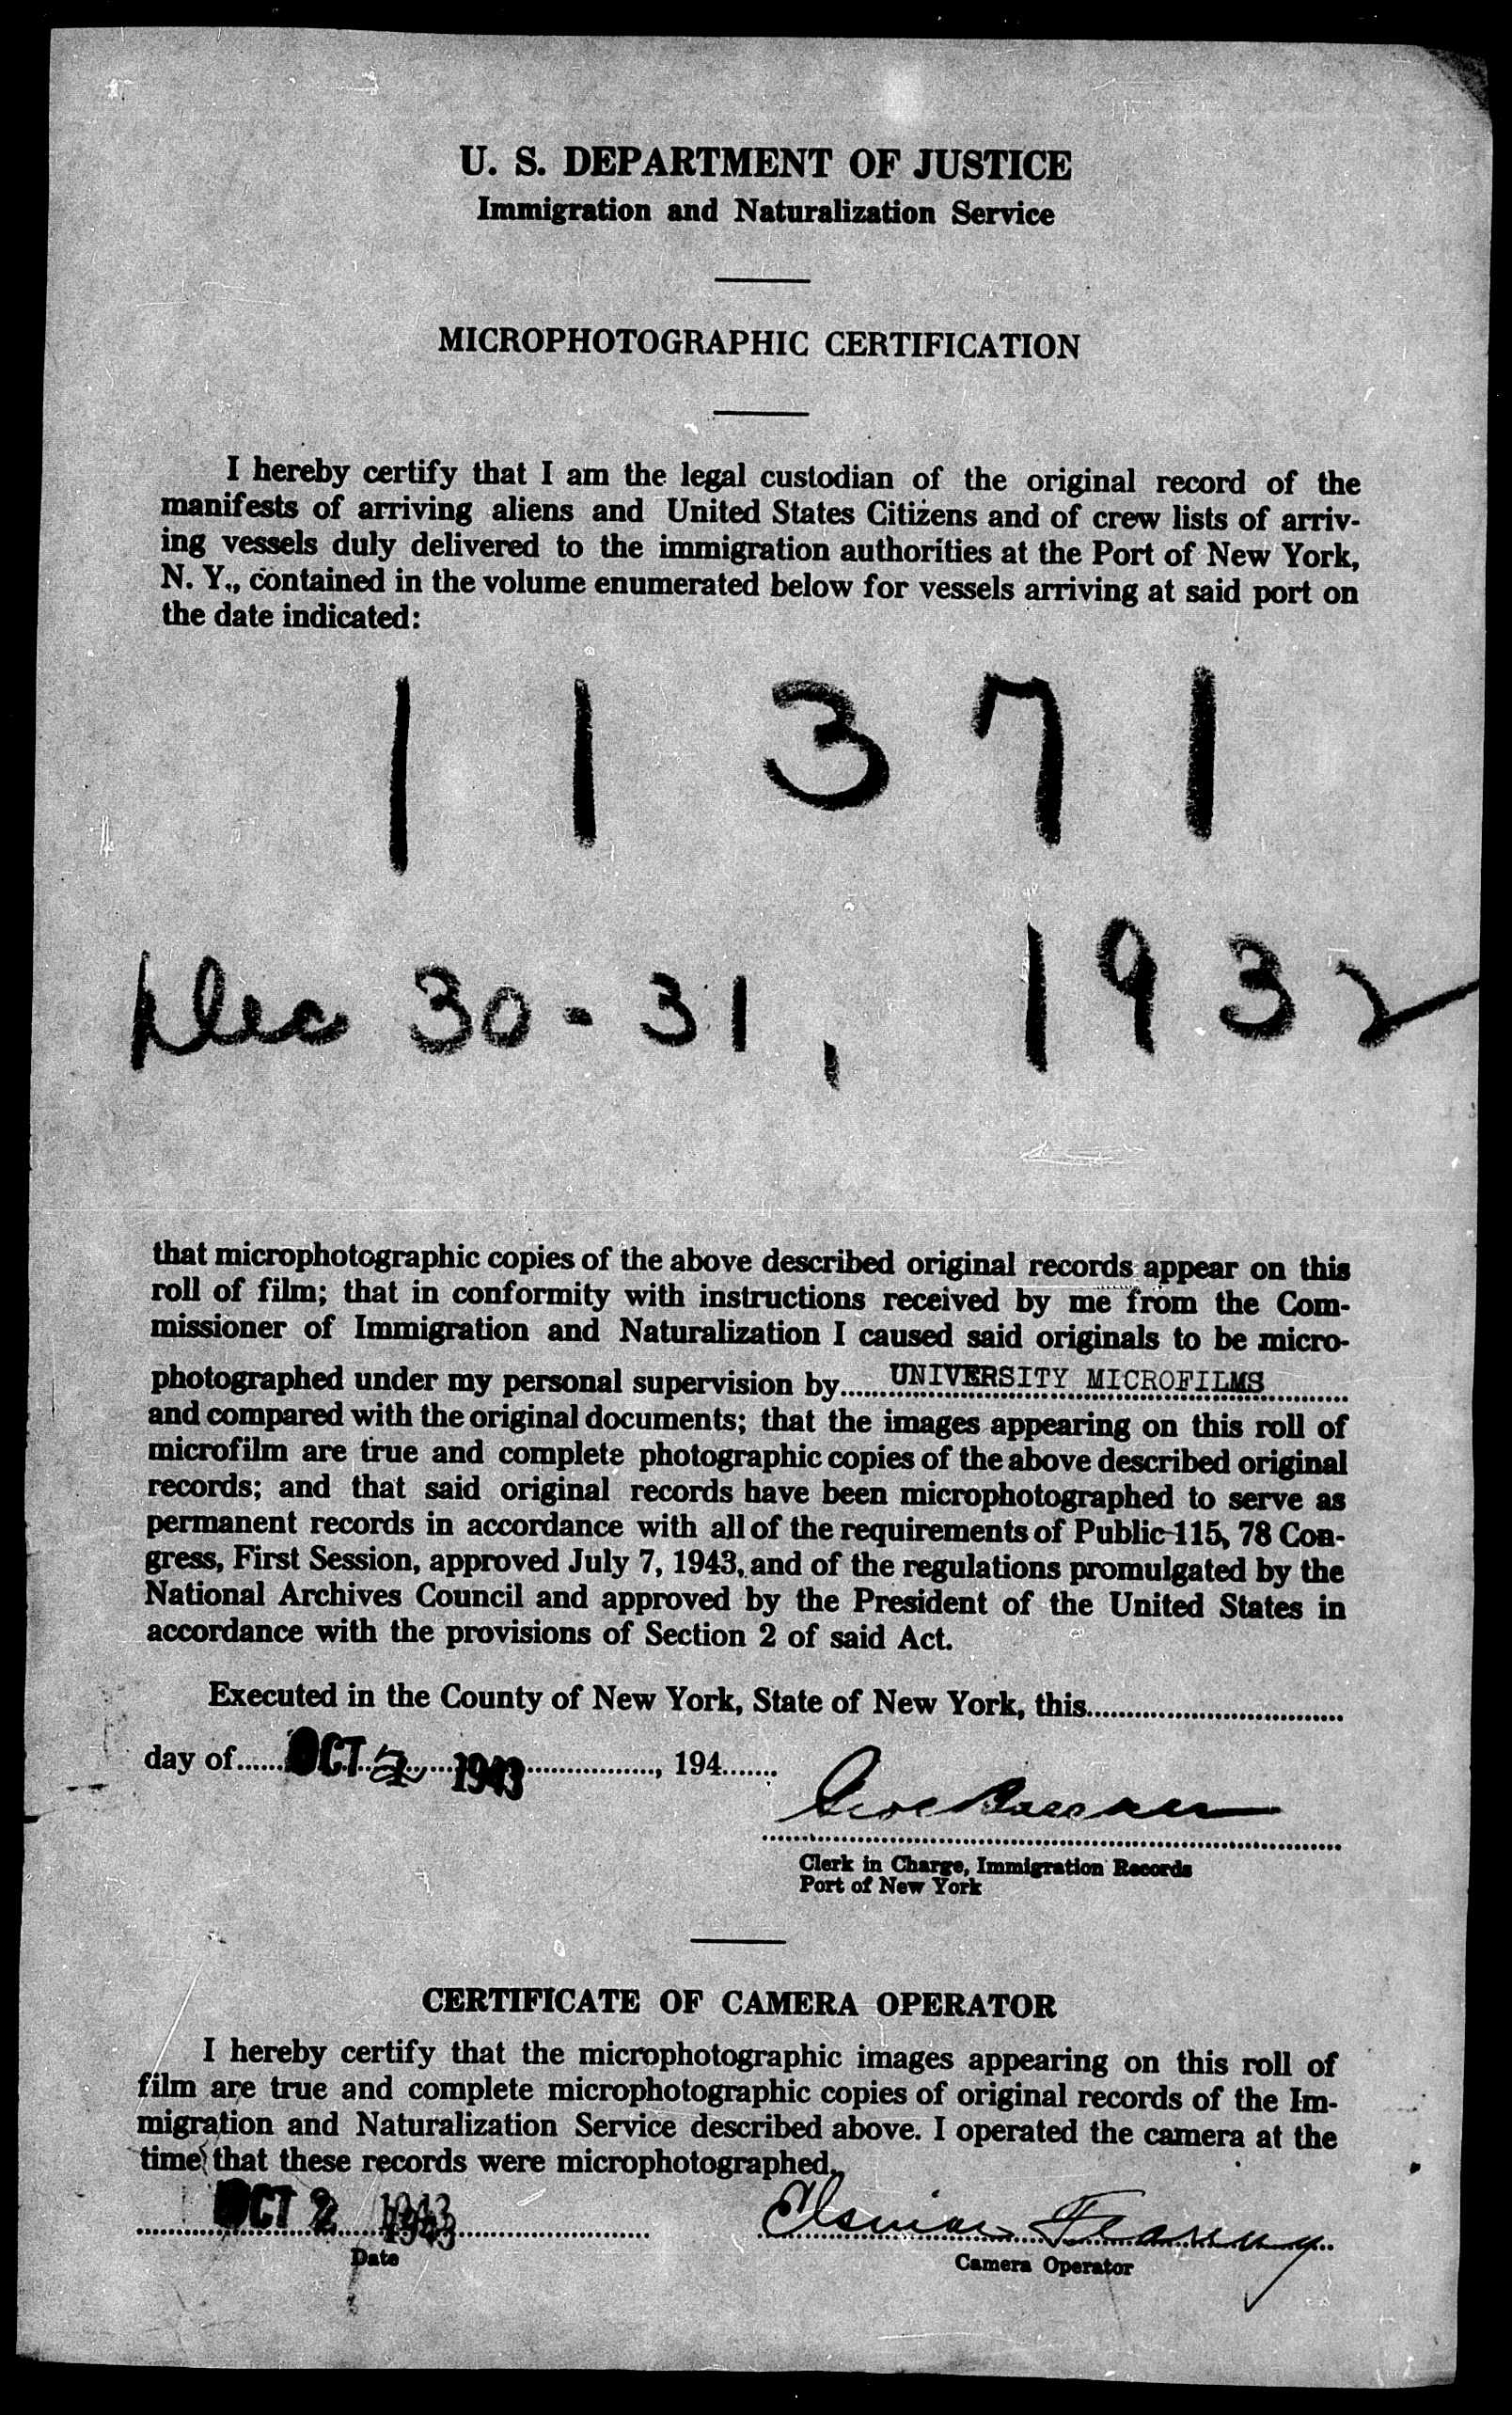 U. S. DEPARTMENT OF JUSTICE
Immigration and Naturalization Service
MICROPHOTOGRAPHIC CERTIFICATION
I hereby certify that I am the legal custodian of the original record of the
manifests of arriving aliens and United States Citizens and of crew lists of arriv-
ing vessels duly delivered to the immigration authorities at the Port of New York,
N. Y., contained in the volume enumerated below for vessels arriving at said port on
the date indicated:
11371
Dec 30-31, 1932
that microphotographic copies of the above described original records appear on this
roll of film; that in conformity with instructions received by me from the Com-
missioner of Immigration and Naturalization I caused said originals to be micro-
photographed under my personal supervision by UNIVERSITY MICROFILMS
and compared with the original documents; that the images appearing on this roll of
microfilm are true and complete photographic copies of the above described original
records; and that said original records have been microphotographed to serve as
permanent records in accordance with all of the requirements of Public 115, 78 Con-
gress, First Session, approved July 7, 1943, and of the regulations promulgated by the
National Archives Council and approved by the President of the United States in
accordance with the provisions of Section 2 of said Act.
Executed in the County of New York, State of New York, this
day of OCT 2 1943, 194
Clerk in Charge, Immigration Records
Port of New York
CERTIFICATE OF CAMERA OPERATOR
I hereby certify that the microphotographic images appearing on this roll of
film are true and complete microphotographic copies of original records of the Im-
migration and Naturalization Service described above. I operated the camera at the
time that these records were microphotographed.
OCT 2 1943
Date
Camera Operator